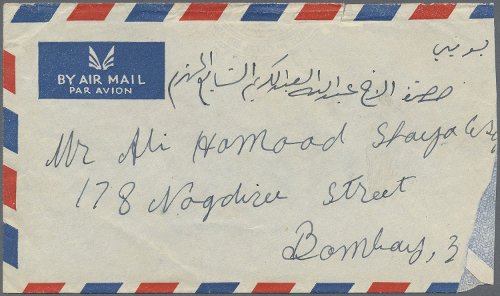 BY AIR MAIL
PAR AVION
بومبي
حضرة الاخ عبدالله العبدالكريم الشايع المحترم
Mr Ali Hamood Shaya Esq
178 Nagdivee Street
Bombay, 3